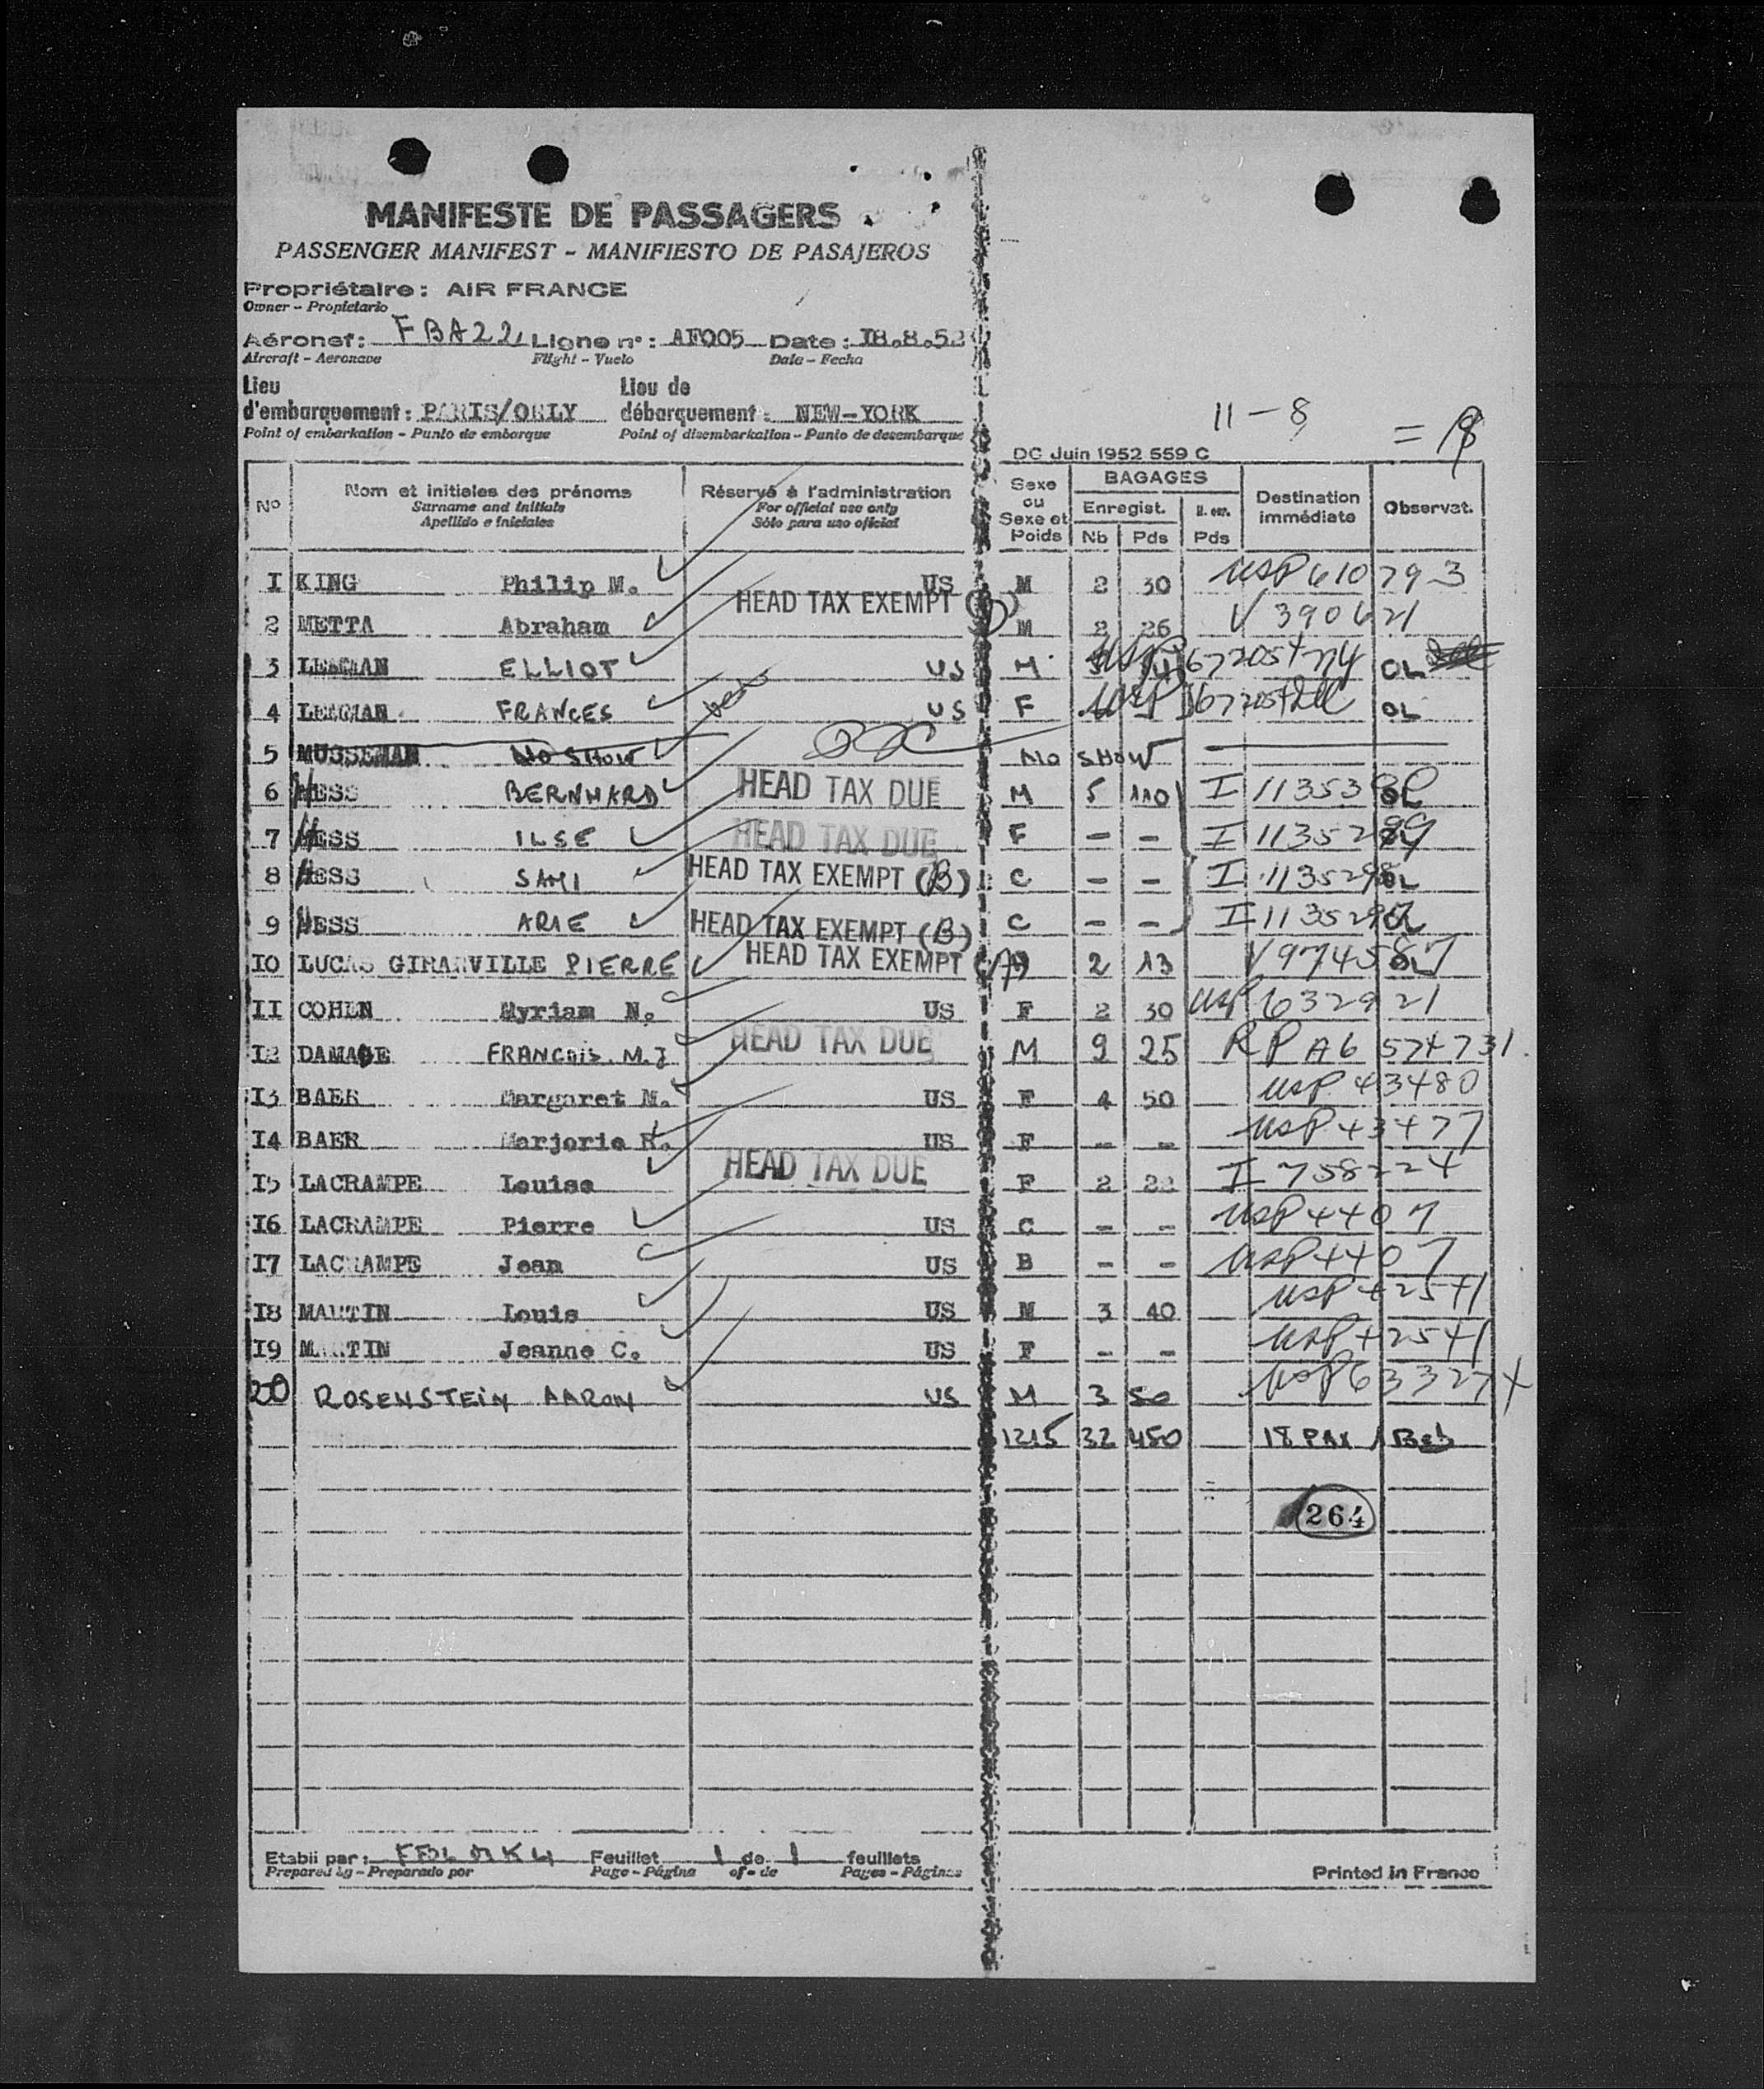 MANIFESTE DE PASSAGERS
PASSENGER MANIFEST - MANIFIESTO DE PASAJEROS
Propriétaire : AIR FRANCE
Owner - Propietario
Aéronef : FBAZZ Ligne n° : AF005 Date : I8.8.52
Aircraft - Aeronave Flight - Vuelo Date - Fecha
Lieu d'embarquement : PARIS/ORLY Lieu de débarquement : NEW-YORK
Point of embarkation - Punto de embarque Point of disembarkation - Punto de desembarque
11 - 8 =
DC Juin 1952 559 C
N° Nom et initiales des prénoms Réservé à l'administration Sexe ou Sexe et Poids BAGAGES Destination immédiate Observat.
Surname and initials For official use only Enregist.
Apellido e iniciales Sólo para uso oficial Nb Pds Pds
I KING Philip M. US M 2 30 USP 610793
HEAD TAX EXEMPT
2 METTA Abraham M 2 26 V 390621
3 ELLIOT US M OL
4 FRANCES US F OL
5 MUSSEMAN NO SHOW No SHOW
6 HESS BERNHARD HEAD TAX DUE M 5 110 I
7 HESS ILSE HEAD TAX DUE F - - I
8 HESS SAMI HEAD TAX EXEMPT (B) C - - I
9 HESS ARIE HEAD TAX EXEMPT (B) C - - I
I0 LUCAS PIERRE HEAD TAX EXEMPT (A) 2 13
II COHEN Myriam N. US F 2 30 USP 632921
I2 FRANCOIS. M.J HEAD TAX DUE M 9 25 RP A6 574731
I3 BAER Margaret M. US F 4 50 USP 43480
I4 BAER Marjorie R. US F - - USP 43477
I5 LACRAMPE Louise HEAD TAX DUE F 2 I 758224
I6 LACRAMPE Pierre US C - - USP 4407
I7 LACRAMPE Jean US B - - USP 4407
I8 MARTIN Louis US M 3 40 USP 42541
I9 MARTIN Jeanne C. US F - - USP 42541
20 ROSENSTEIN AARON US M 3 50 USP 633274
1215 32 450 18 PAX 1 Beb
264
Etabli par : Feuillet 1 de 1 feuillets
Prepared by - Preparado por Page - Página of - de Pages - Páginas
Printed in France